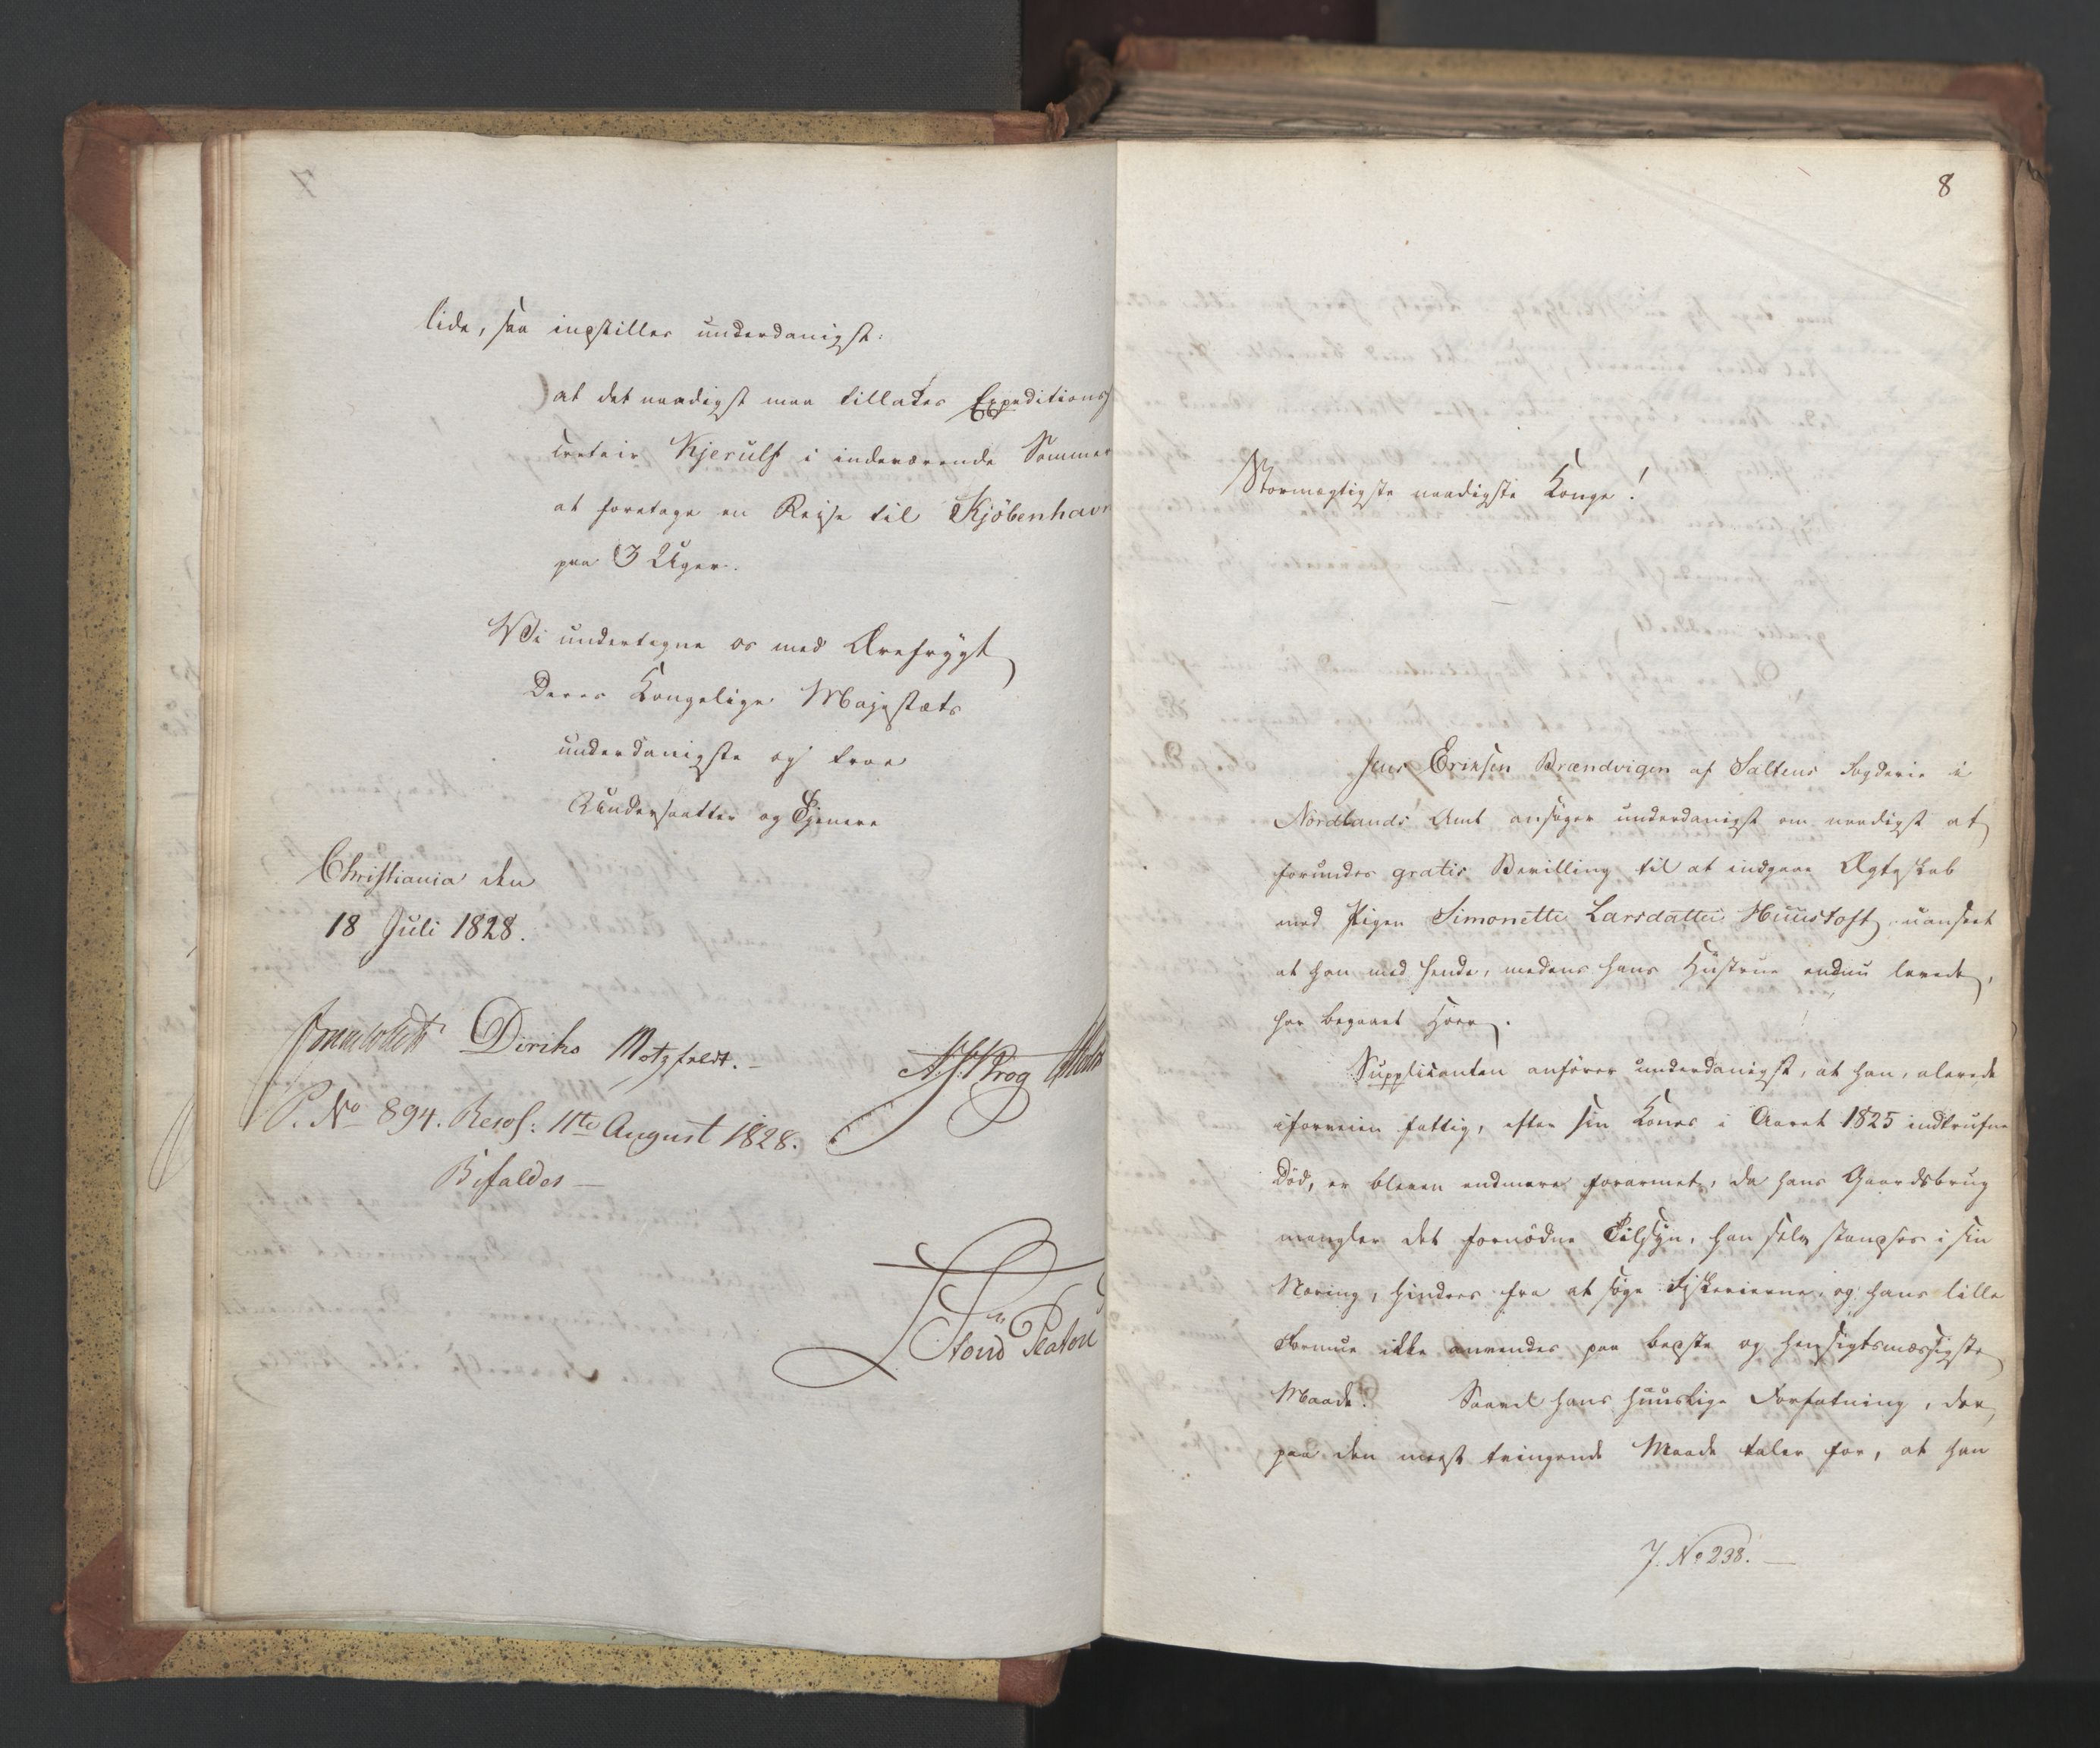 lide, saa indstilles underdanigst:
at det naadigst maa tillades Expeditions
secretair Kjerulf i indeværende Sommer
at foretage en Reise til Kjöbenhavn
paa 3 Uger.
Vi undertegne os med Ærefrygt
Deres Kongelige Majestæts
underdanigste og troe
Undersaatter og Tjenere
Christiania den
18 Juli 1828.
Diriks Motzfeldt. Krog
P. No 894. Resol: 11te August 1828.
Bifaldes
8
Stormægtigste naadigste Konge!
Jens Eriksen Brændvigen af Saltens Fogderie i
Nordlands Amt ansøger underdanigst om naadigst at
forundes gratis Bevilling til at indgaae Ægteskab
med Pigen Simonette Larsdatter uanseet
at han med hende, medens hans Hustrue endnu levede,
har begaaet Hoer.
Supplicanten anfører underdanigst, at han, allerede
iforveien fattig, efter sin Kones i Aaret 1825 indtrufne
Död, er bleven endmere forarmet, da hans Gaardsbrug
mangler det fornödne Tilsyn, han selv standses i sin
Næring, hindres fra at søge Fiskerierne, og hans lille
Formue ikke anvendes paa bedste og hensigtsmæssigste
Maade. Saavel hans huuslige Forfatning, der
paa den meest tvingende Maade taler for, at han
J. No 238.